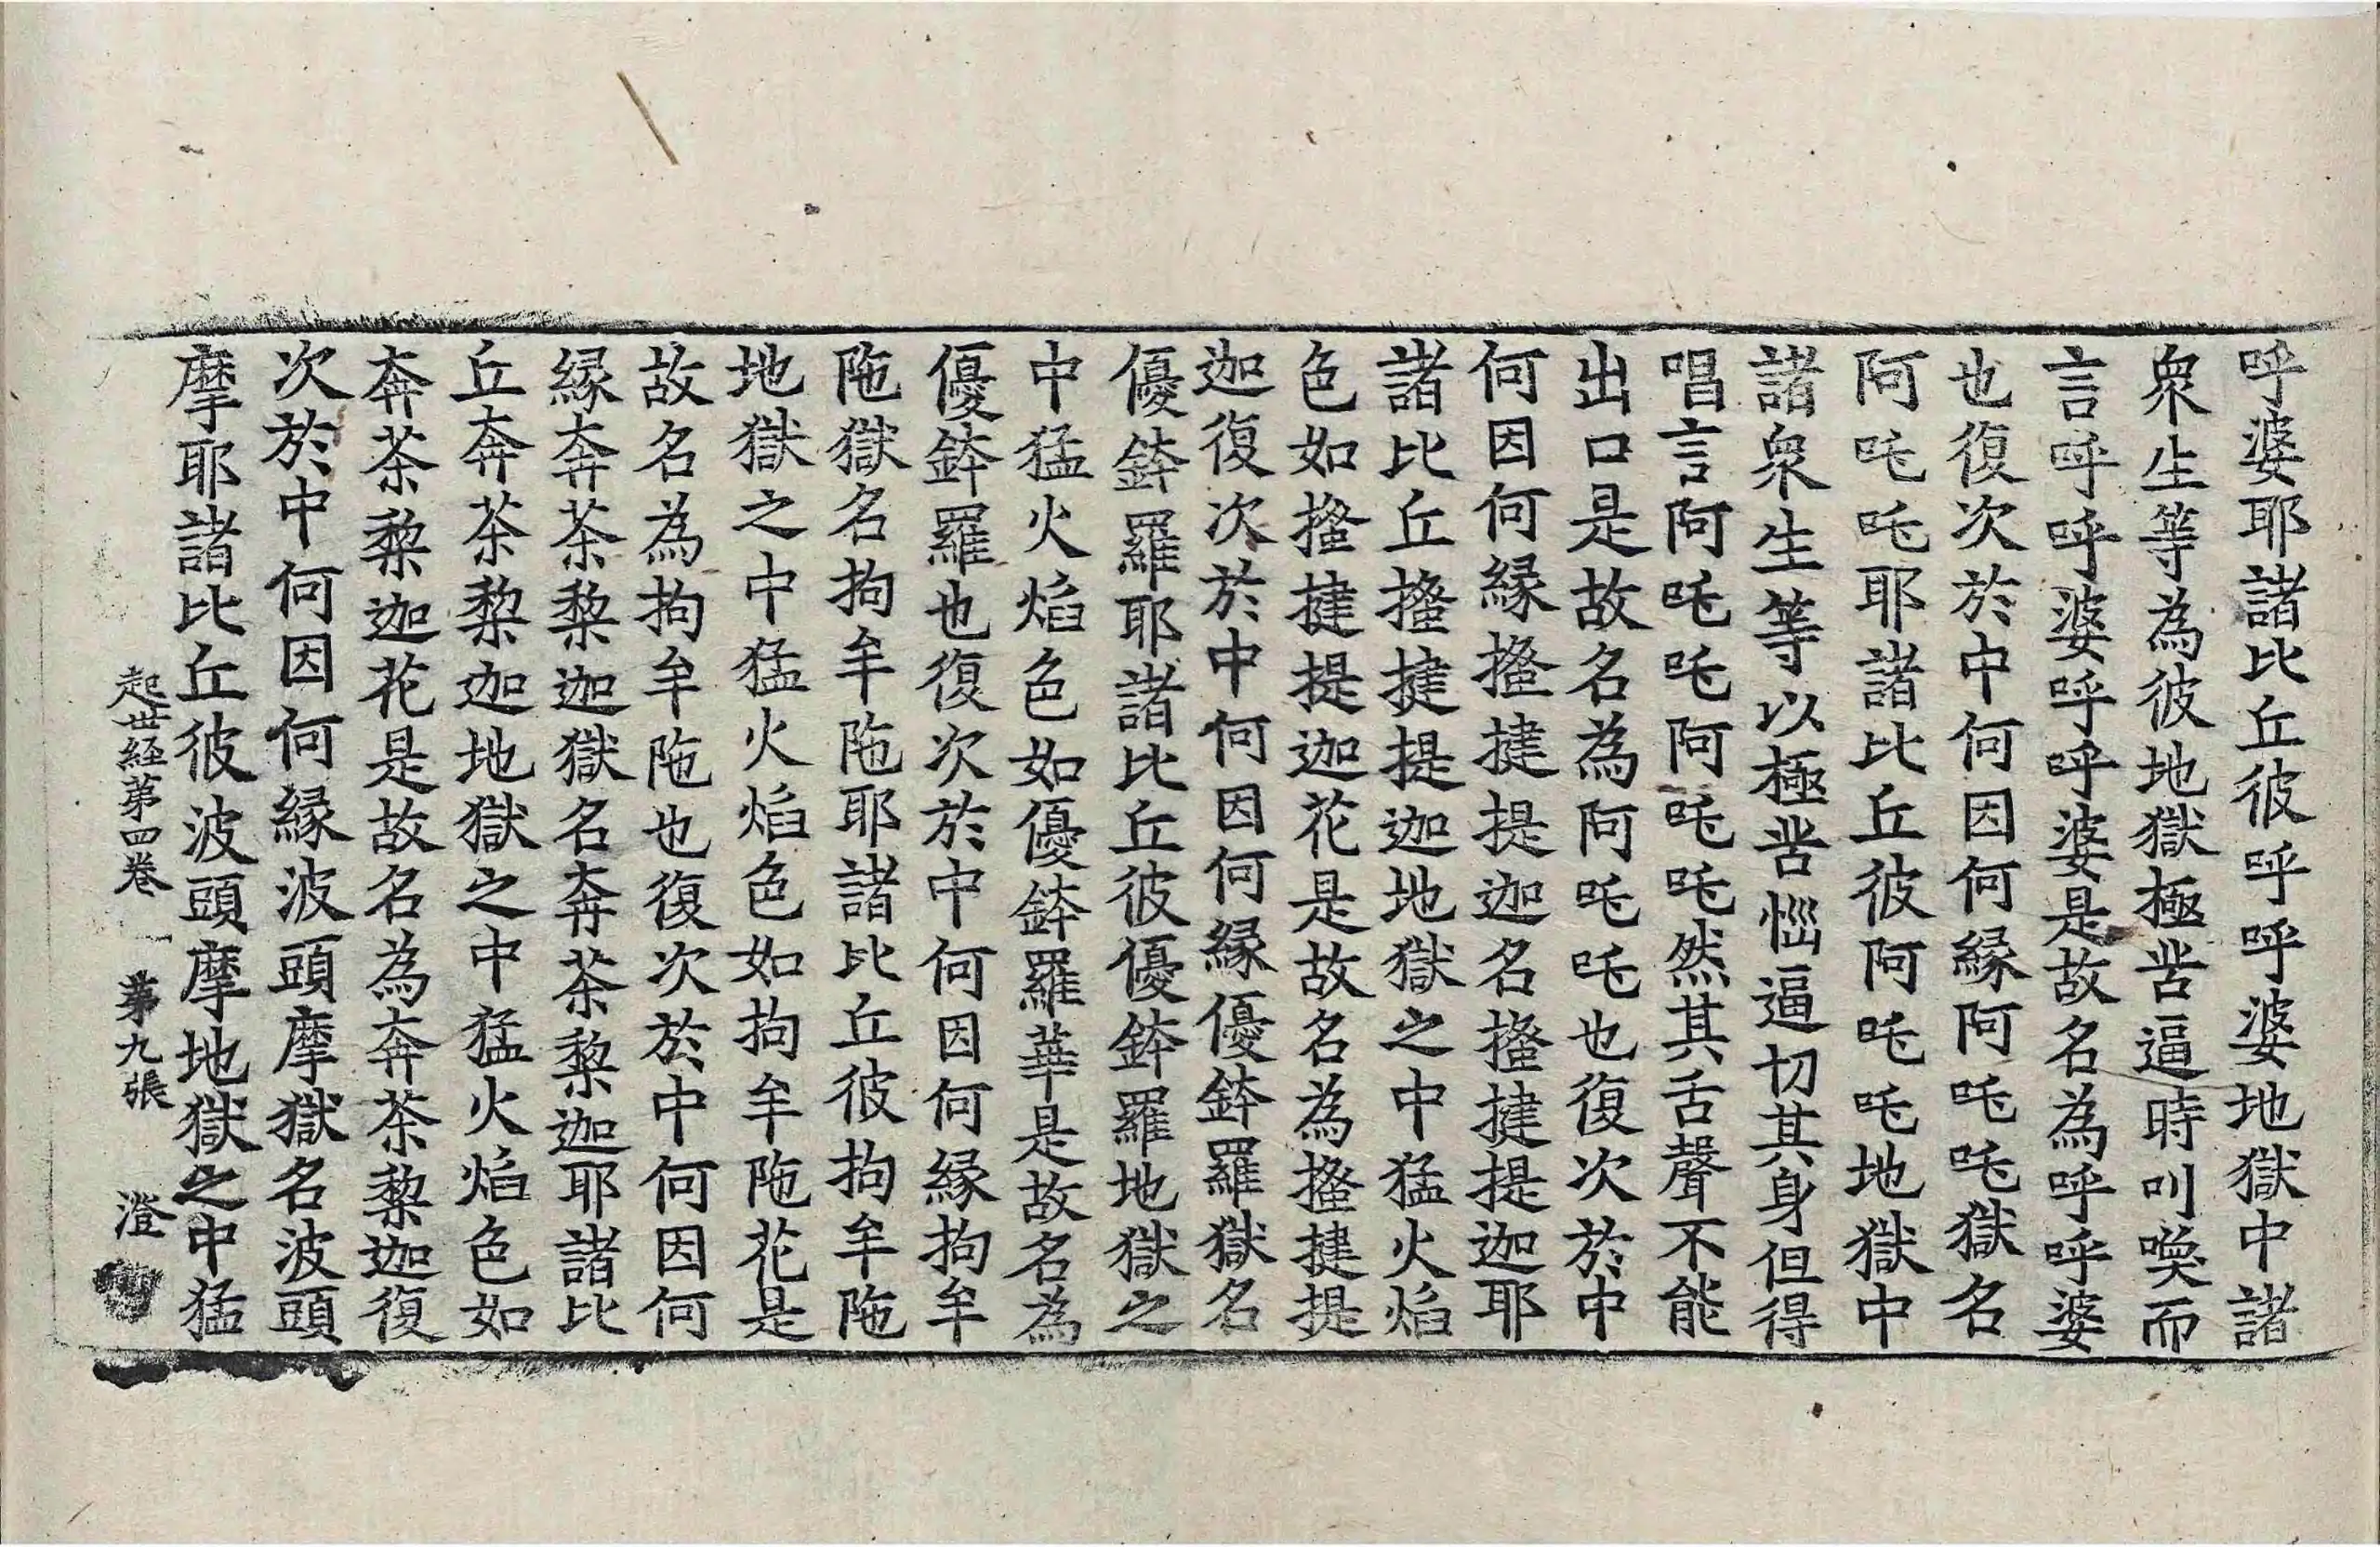 呼婆耶諸比丘彼呼呼婆地獄中諸
衆生等為彼地獄極苦逼時叫喚而
言呼呼婆呼呼婆是故名為呼呼婆
也復次於中何因何縁阿吒吒獄名
阿吒吒耶諸比丘彼阿吒吒地獄中
諸衆生等以極苦惱逼切其身但得
唱言阿吒吒阿吒吒然其舌聲不能
出口是故名為阿吒吒也復次於中
何因何縁搔揵提迦名搔揵提迦耶
諸比丘搔揵提迦地獄之中猛火焰
色如搔揵提迦花是故名為搔揵提
迦復次於中何因何縁優鉢羅獄名
優鉢羅耶諸比丘彼優鉢羅地獄之
中猛火焰色如優鉢羅華是故名為
優鉢羅也復次於中何因何縁拘牟
陁獄名拘牟陁耶諸比丘彼拘牟陁
地獄之中猛火焰色如拘牟陁花是
故名為拘牟陁也復次於中何因何
縁奔茶黎迦獄名奔茶黎迦耶諸比
丘奔茶黎迦地獄之中猛火焰色如
奔茶黎迦花是故名為奔茶黎迦復
次於中何因何縁波頭摩獄名波頭
摩耶諸比丘彼波頭摩地獄之中猛
起世経第四卷 第九張 澄